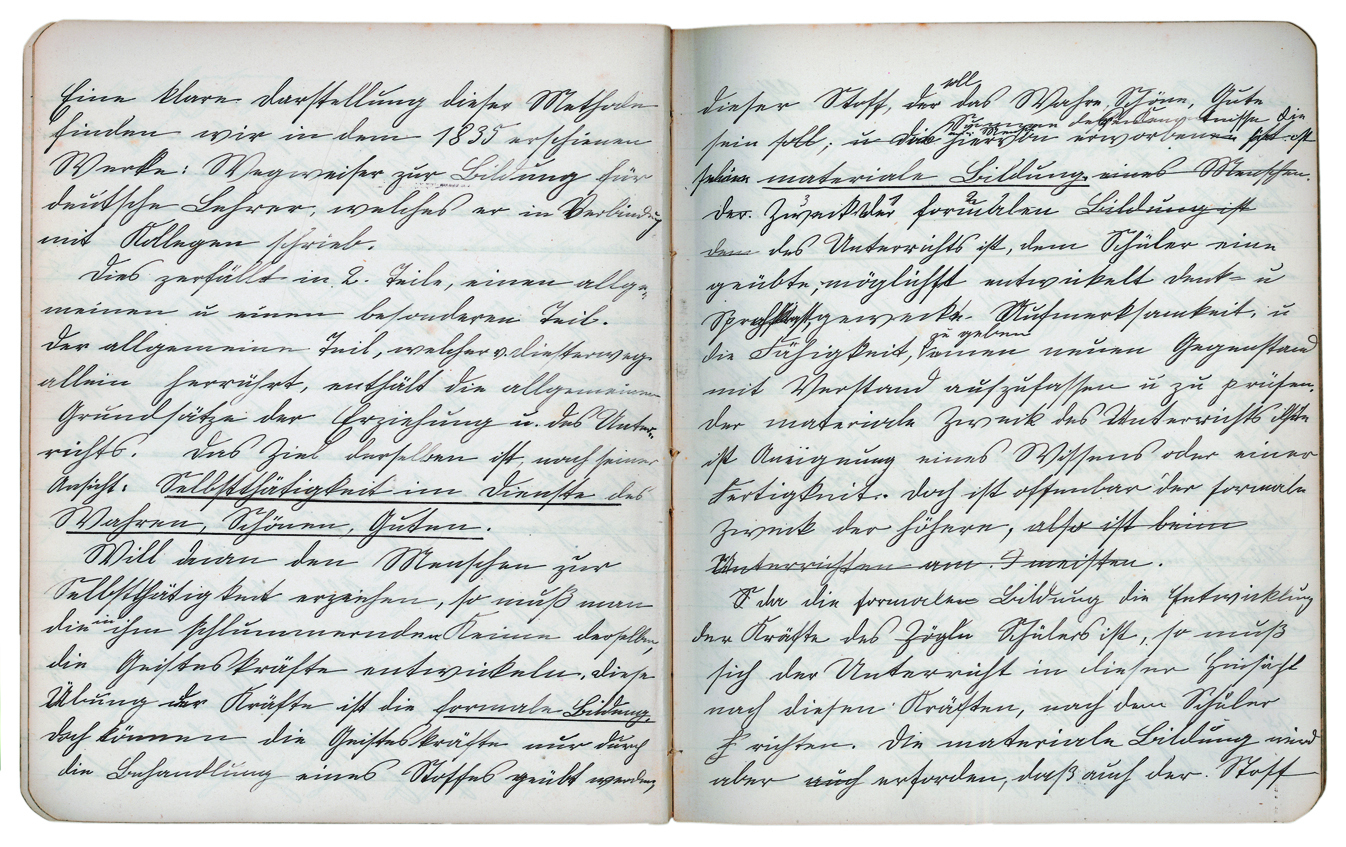 Eine klare Darstellung dieser Methode
finden wir in dem 1835 erschienen
Werke: Wegweiser zur Bildung für
deutsche Lehrer, welches er in Verbindung
mit Kollegen schrieb.
Dies zerfällt in 2. Teile, einen allge-
meinen u einen besonderen Teil.
Der allgemeine Teil, welcher v. Diesterweg
allein herrührt, enthält die allgemeinen
Grundsätze der Erziehung u. des Unter-
richts. Das Ziel derselben ist, nach seiner
Ansicht: Selbstthätigkeit im Dienste des
Wahren, Schönen, Guten.
Will man den Menschen zur
Selbstthätigkeit erziehen, so muß man
die in ihm schlummernden Keime derselben,
die Geisteskräfte entwickeln, diese
Übung der Kräfte ist die formale Bildung,
doch können die Geisteskräfte nur durch
die Behandlung eines Stoffes geübt werden,
soll
dieser Stoff, der das Wahre, Schöne, Gute
sein soll; u die hiervon erworbenen
materiale Bildung eines Menschen.
der Zweck der formalen Bildung ist
dem des Unterrichts ist, dem Schüler eine
geübte, möglichst entwickelt Denk- u
Sprachkraft, geweckte Aufmerksamkeit, u
zu geben
die Fähigkeit, einen neuen Gegenstand
mit Verstand aufzufassen u zu prüfen.
der materiale Zweck des Unterrichts
ist Aneignung eines Wissens oder einer
Fertigkeit. Doch ist offenbar der formale
Zweck der höhere, also ist beim
Unterrichten am meisten.
da die formalen Bildung die Entwicklung
der Kräfte des Zögln Schülers ist, so muß
sich der Unterricht in dieser Hinsicht
nach diesen Kräften, nach dem Schüler
richten. Die materiale Bildung wird
aber auch erforden, daß auch der Stoff